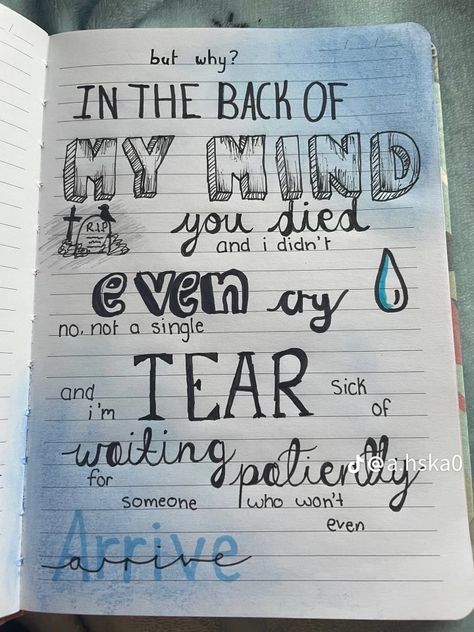 but why?
IN THE BACK OF
MY MIND
R.I.P
you died
and i didn't
even cry
no, not a single
TEAR
and i'm
sick of
waiting patiently
for someone who won't even
Arrive
arrive
@a.hska0